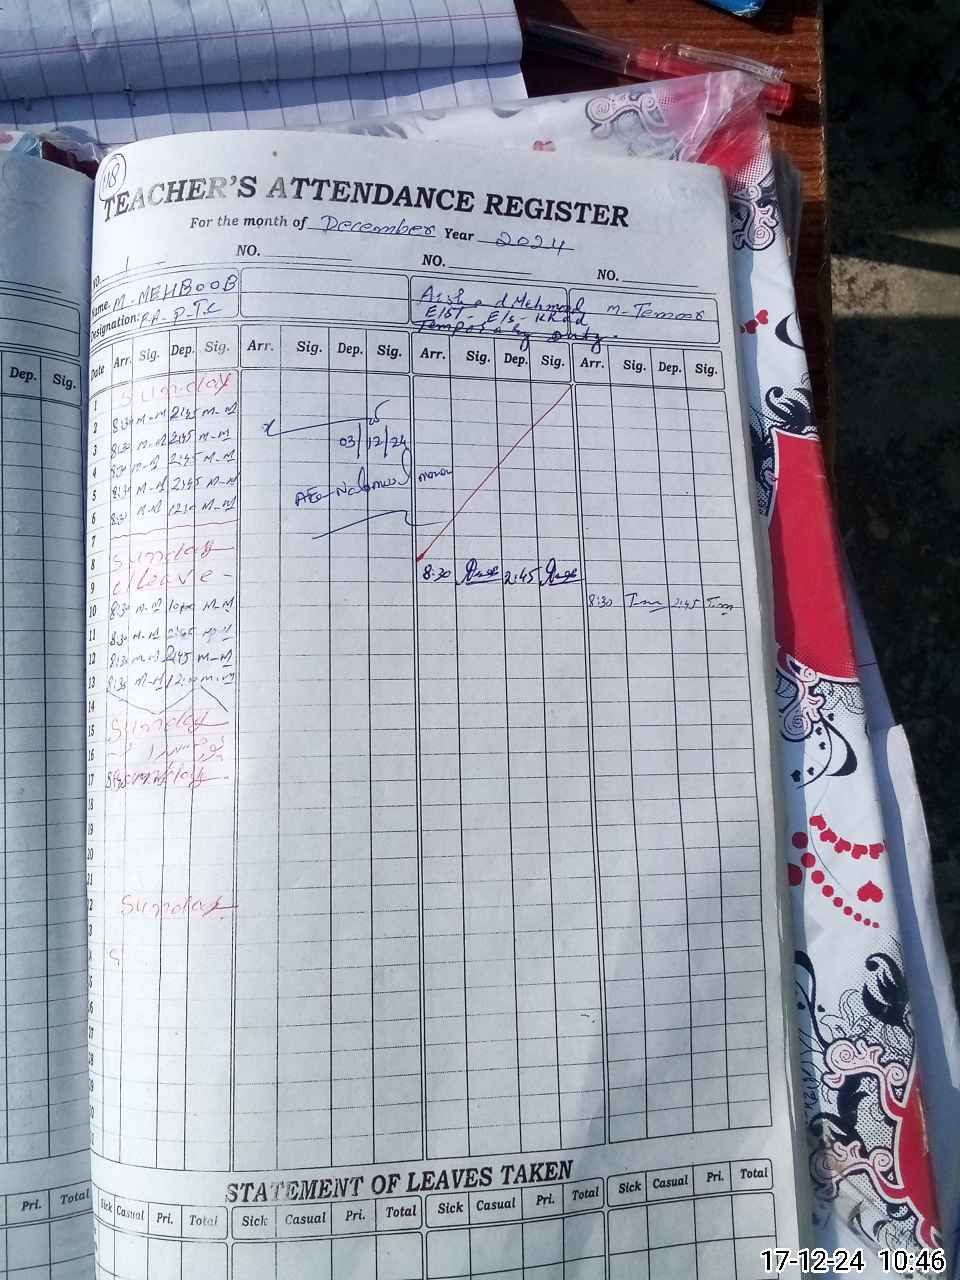 118
TEACHER'S ATTENDANCE REGISTER
For the month of December Year 2024
NO. 1 NO. NO. NO.
Name. M-MEHBOOB
Designation: P.T.C
Mehmood
Temporary Duty.
M-Temoor
Date Arr. Sig. Dep. Sig. Arr. Sig. Dep. Sig. Arr. Sig. Dep. Sig. Arr. Sig. Dep. Sig.
Dep. Sig.
1 Sunday
2 8:30 M-M 2:45 M-M
3 8:30 M-M 2:45 M-M
4 8:30 M-M 2:45 M-M
5 8:30 M-M 2:45 M-M
6 8:30 M-M M-M
03/12/24
AEO
7
8 Sunday
9 C/Leave
8:30 2:45
10 8:30 M-M M-M
8:30 Tm 2:45 Tm
11 8:30 M-M 2:45 M-M
12 8:30 M-M 2:45 M-M
13 8:30 M-M M-M
14
15 Sunday
16
17
18
19
20
21
Sunday
STATEMENT OF LEAVES TAKEN
Pri. Total
Sick Casual Pri. Total Sick Casual Pri. Total Sick Casual Pri. Total Sick Casual Pri. Total
17-12-24 10:46